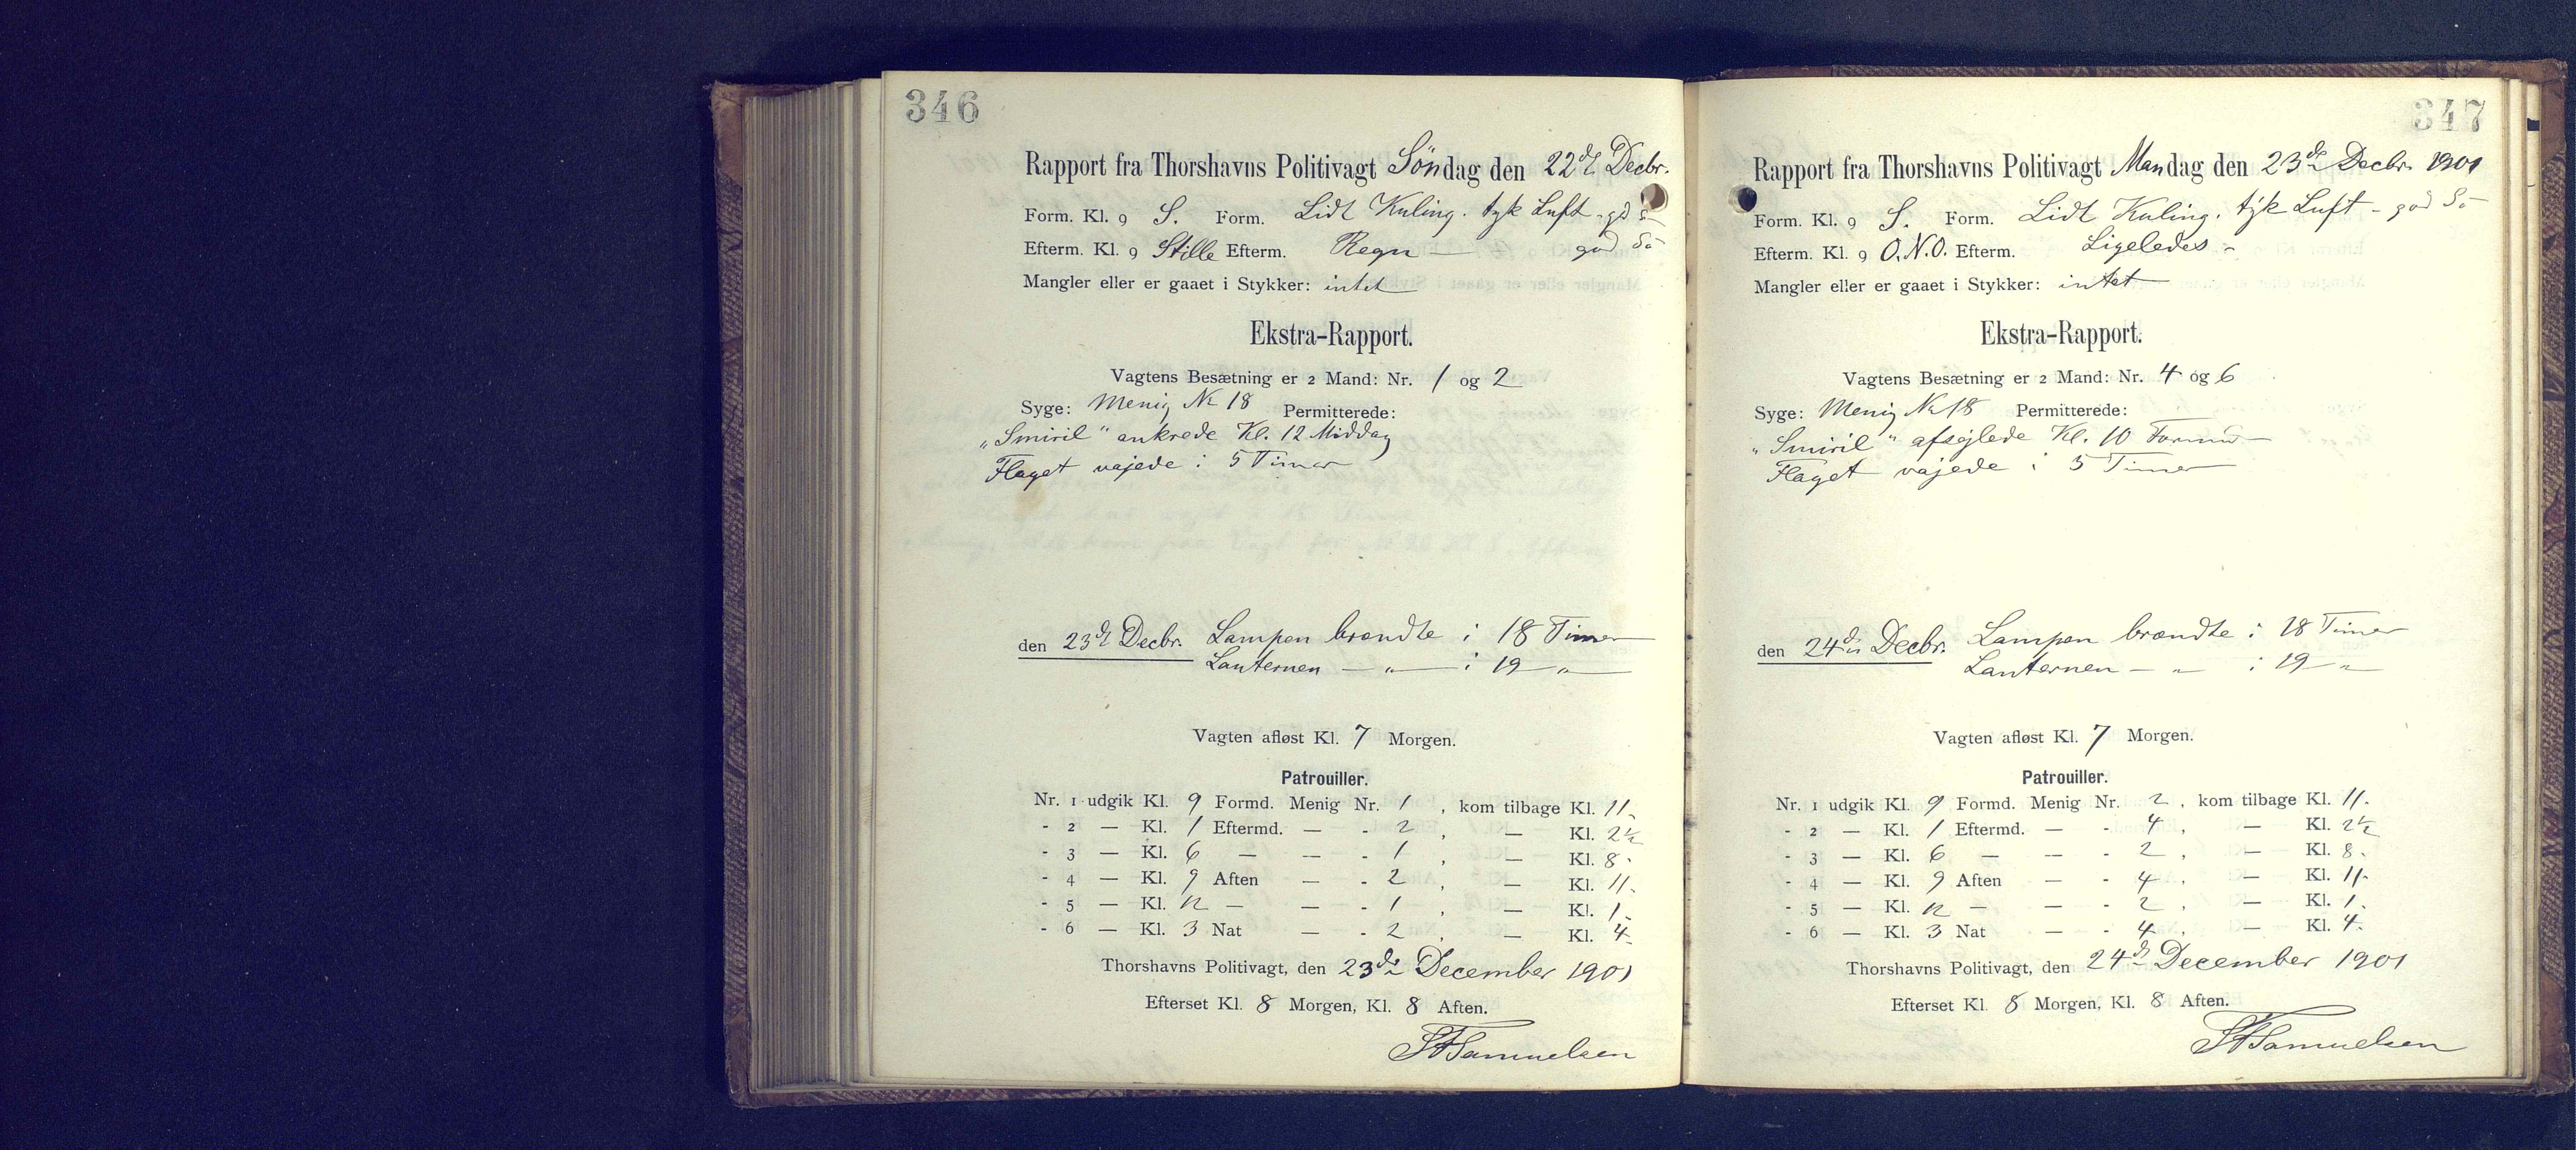 346
Rapport fra Thorshavns Politivagt Søndag den 22de Decbr.
Form. Kl. 9 S. Form. Lidt Kuling. tyk Luft - gd S-
Efterm. Kl. 9 Stille Efterm. Regn — god Sø
Mangler eller er gaaet i Stykker: intet
Ekstra-Rapport.
Vagtens Besætning er 2 Mand: Nr. 1 og 2
Syge: Menig Nr 18 Permitterede:
„Smiril" ankrede Kl. 12 Middag
Flaget vajede i 5 Timer
den 23de Decbr. Lampen brændte i 18 Timer
Lanternen — „ — i 19 „
Vagten afløst Kl. 7 Morgen.
Patrouiller.
Nr. 1 udgik Kl. 9 Formd. Menig Nr. 1 , kom tilbage Kl. 11.
- 2 — Kl. 1 Eftermd. — - 2 , — Kl. 2½
- 3 — Kl. 6 — — - 1 , — Kl. 8.
- 4 — Kl. 9 Aften — - 2 , — Kl. 11.
- 5 — Kl. 12 — — - 1 , — Kl. 1.
- 6 — Kl. 3 Nat — - 2 , — Kl. 4.
Thorshavns Politivagt, den 23de December 1901
Efterset Kl. 8 Morgen, Kl. 8 Aften.
Samuelsen
347
Rapport fra Thorshavns Politivagt Mandag den 23de Decbr. 1901
Form. Kl. 9 S. Form. Lidt Kuling. tyk Luft - god Sø
Efterm. Kl. 9 O.N.O. Efterm. Ligeledes -
Mangler eller er gaaet i Stykker: intet
Ekstra-Rapport.
Vagtens Besætning er 2 Mand: Nr. 4 og 6
Syge: Menig Nr 18 Permitterede:
„Smiril" afsejlede Kl. 10 Formd
Flaget vajede i 5 Timer
den 24de Decbr. Lampen brændte i 18 Timer
Lanternen — „ i 19 „
Vagten afløst Kl. 7 Morgen.
Patrouiller.
Nr. 1 udgik Kl. 9 Formd. Menig Nr. 2 , kom tilbage Kl. 11.
- 2 — Kl. 1 Eftermd. — - 4 , — Kl. 2½
- 3 — Kl. 6 — — - 2 , — Kl. 8.
- 4 — Kl. 9 Aften — - 4 , — Kl. 11.
- 5 — Kl. 12 — — - 2 , — Kl. 1.
- 6 — Kl. 3 Nat — - 4 , — Kl. 4.
Thorshavns Politivagt, den 24de December 1901
Efterset Kl. 8 Morgen, Kl. 8 Aften.
Samuelsen